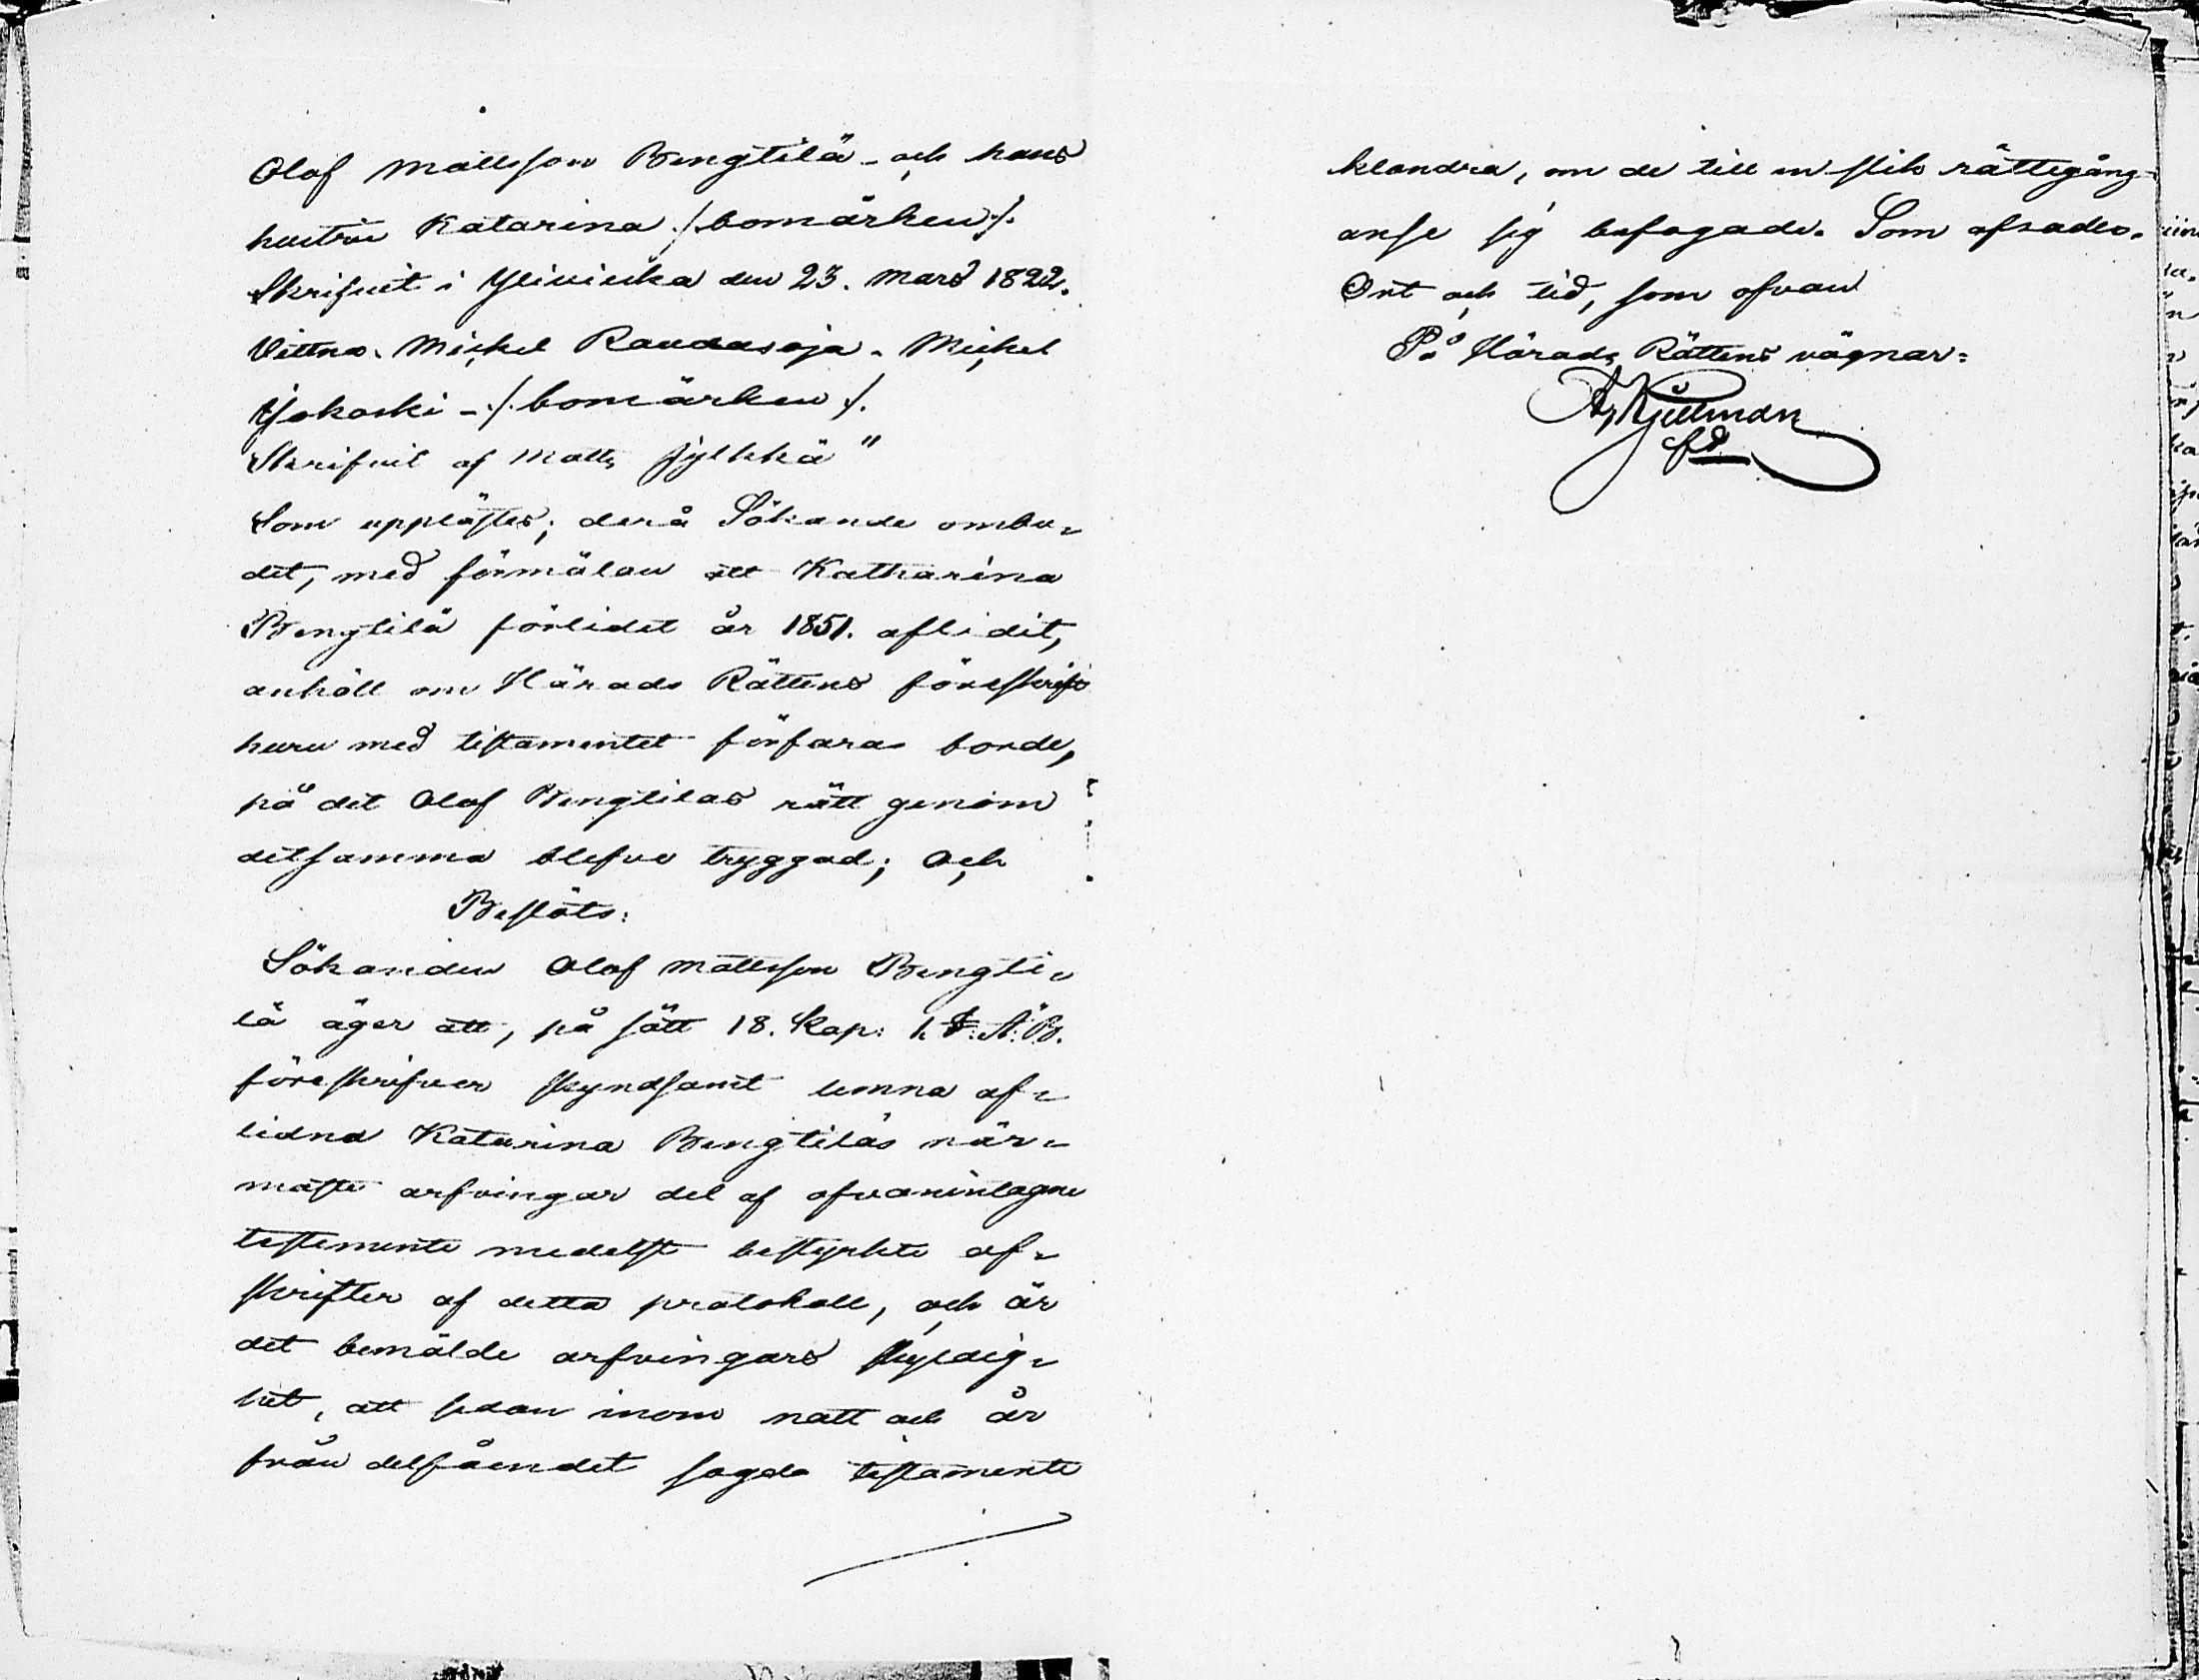 Olof Mattsson Bengtilä - och hans
hustru Katarina ./. bomärken ./.
Skrifvit i Ylivieska den 23. Mars 1822.
Vittna. Michel Raudasoja. Michel
Yokoski - ./. bomärken ./.
Skrifvit af Matts Jylkkä"
Som upplästes; derå Sökande ombu-
det, med förmälan att Katharina
Bengtilä förlidet år 1851. aflidit,
anhöll om Härads Rättens föreskrift
huru med testamentet förfaras borde,
på det Olof Bengtiläs rätt genom
detsamma blefve tryggad; Och
Beslöts:
Sökanden Olof Mattsson Bengti-
lä äger att, på sätt 18. Kap: 1. §. Ä. B.
föreskrifver skyndsamt lemna af-
lidna Katarina Bengtiläs när-
maste arfvingar del af ofvanintagne
testemente medelst bestyrkte af-
skrifter af detta protokoll, och är
det bemälde arfvingars skyldig-
het, att sedan inom natt och år
från delfåendet sagda testamente
klandra, om de till en slik rättegång
anse sig befogade. Som afsades.
Ort och tid, som ofvan
På Härads Rättens vägnar:
Kjellman